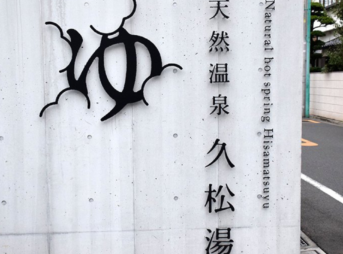 ゆ
天然温泉 久松湯
Natural hot spring Hisamatsuyu